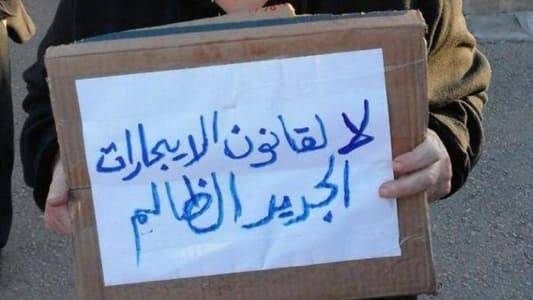 لا لقانون الايجارات
الجديد الظالم